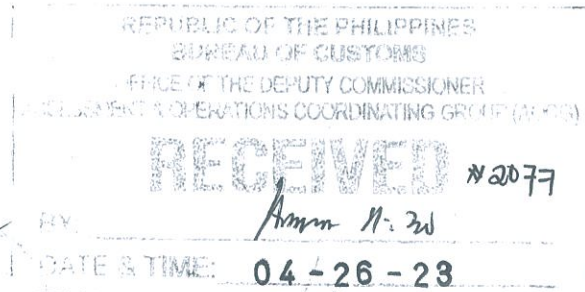 REPUBLIC OF THE PHILIPPINES
BUREAU OF CUSTOMS
OFFICE OF THE DEPUTY COMMISSIONER
ASSESSMENT & OPERATIONS COORDINATING GROUP (AOCG)
RECEIVED #2077
BY: 11:30
DATE & TIME: 04-26-23